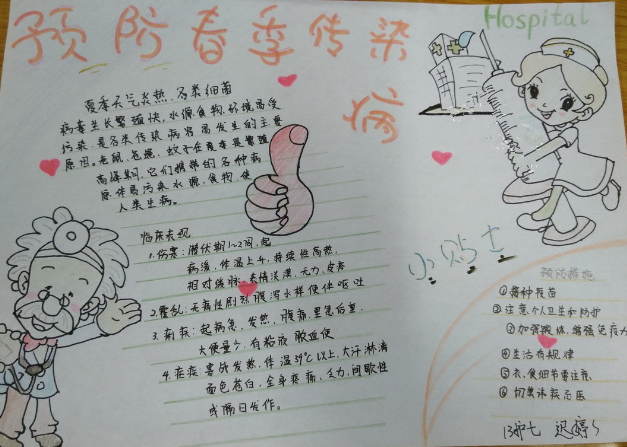 预防春季传染
病
Hospital
夏季天气炎热,各类细菌
病毒生长繁殖快,水源食物,环境易受
污染,是各类传染病将高发生的主要
原因。老鼠,苍蝇,蚊子在夏季是繁殖
高峰期,它们携带的各种病
原体易污染水源,食物,使
人类生病。
临床表现
1.伤寒:潜伏期1~2周,起
病缓,体温上升,持续性高热,
相对缓脉,表情淡漠,无力,皮疹
2.霍乱:无痛性剧烈腹泻水样便伴呕吐
3.痢疾:起病急,发热,腹痛,里急后重,
大便量少,有粘液脓血便
4.疟疾:寒战发热,体温39℃以上,大汗淋漓
面色苍白,全身疼痛,乏力,间歇性
或隔日发作。
小贴士
预防措施
①接种疫苗
②注意个人卫生和防护
③加强锻炼,增强免疫力
④生活有规律
⑤衣,食细节要注意
⑥切莫讳疾忌医
13护七 迟婷